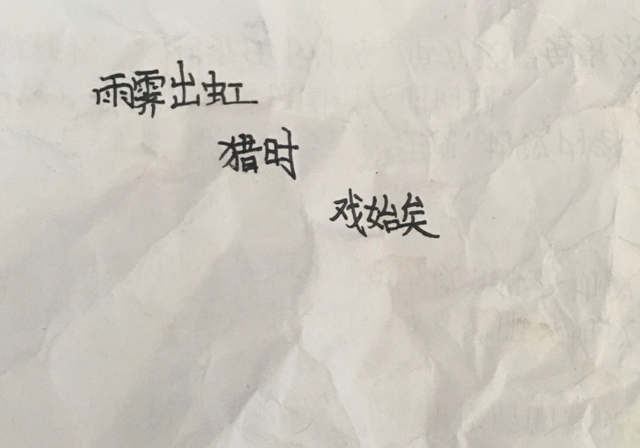 雨霁出虹
猎时
戏始矣